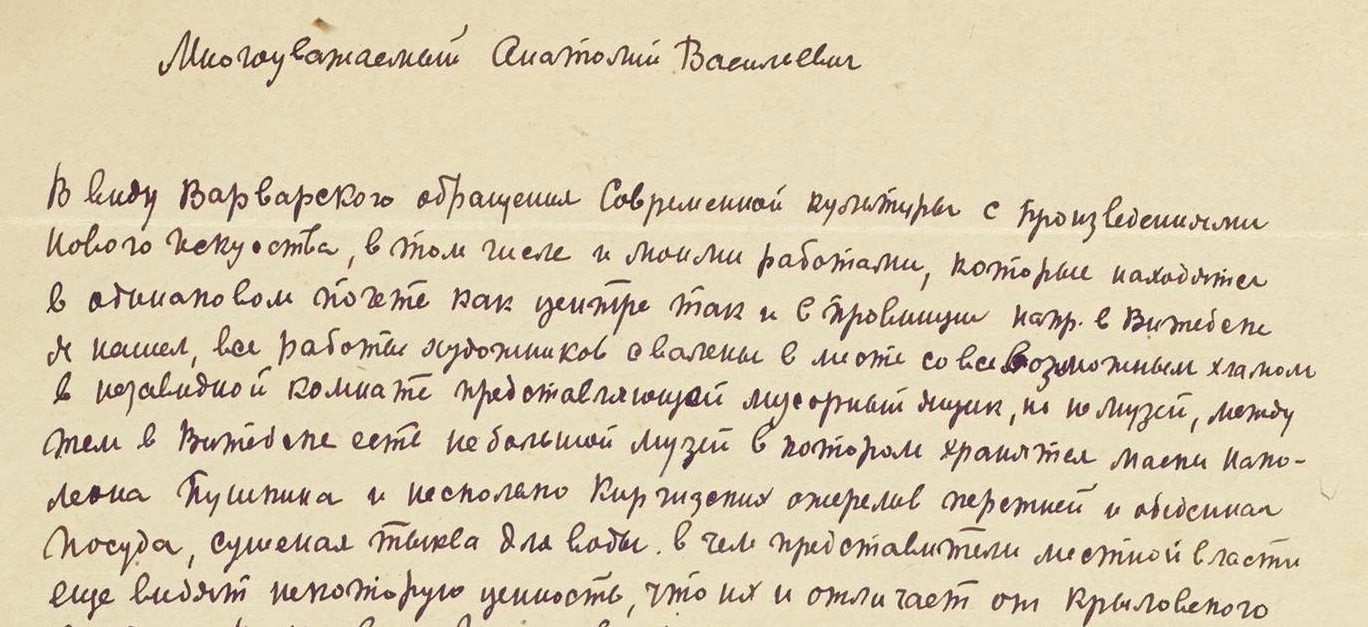 Многоуважаемый Анатолий Васильевич
В виду Варварского обращения Современной культуры с произведениями
Нового искусства, в том числе и моими работами, которые находятся
в одинаковом почете как центре так и в провинции напр. в Витебске
Я нашел, все работы художников свалены в месте со всевозможным хламом
в незавидной комнате представляющей мусорный ящик, но не музей, между
тем в Витебске есть небольшой музей в котором хранятся маски Напо-
леона Пушкина и несколько Киргизских ожерелив перстней и обиденная
посуда, сушеная тыква для воды. в чем представители местной власти
еще видят некоторую ценность, что их и отличает от Крыловского